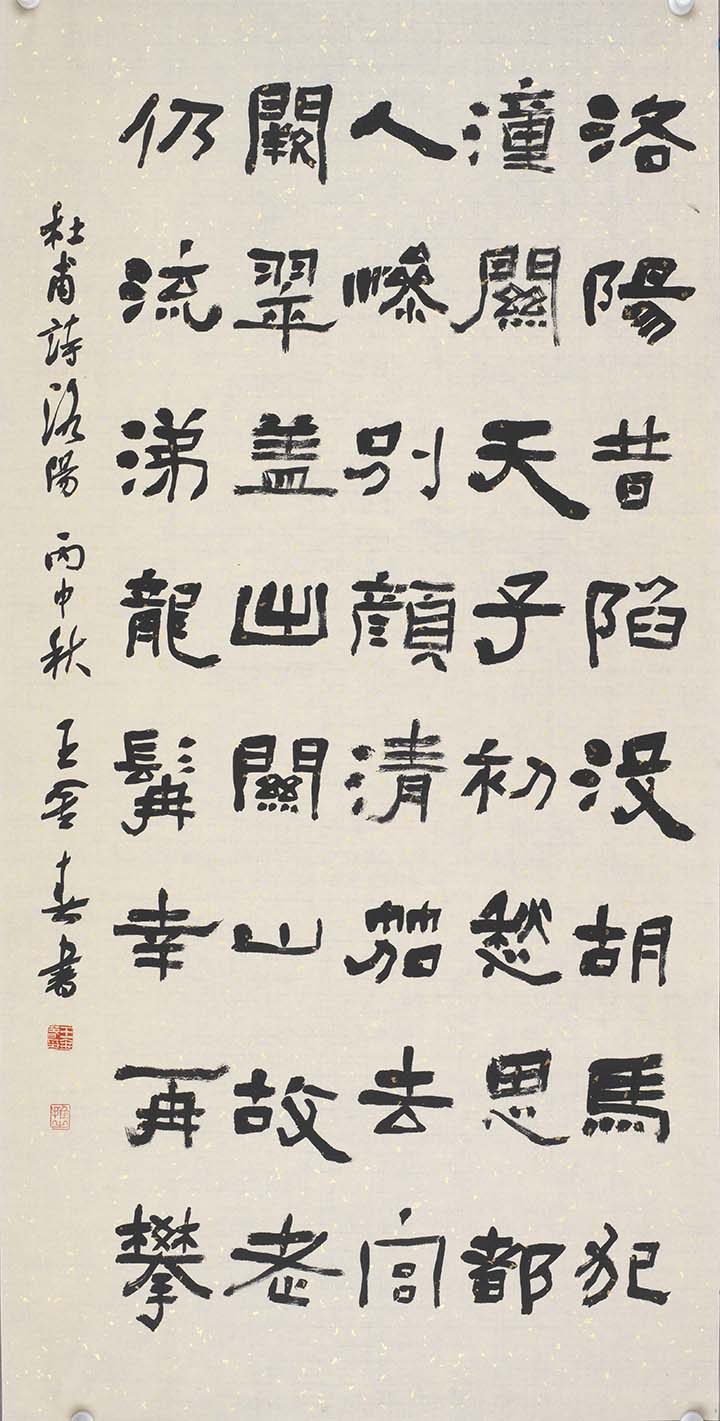 洛陽昔陷没胡馬犯
潼關天子初愁思都
人惨别顔清笳去宫
闕翠盖出關山故老
仍流涕龍髯幸再攀
杜甫詩洛陽 丙申秋 王金春書